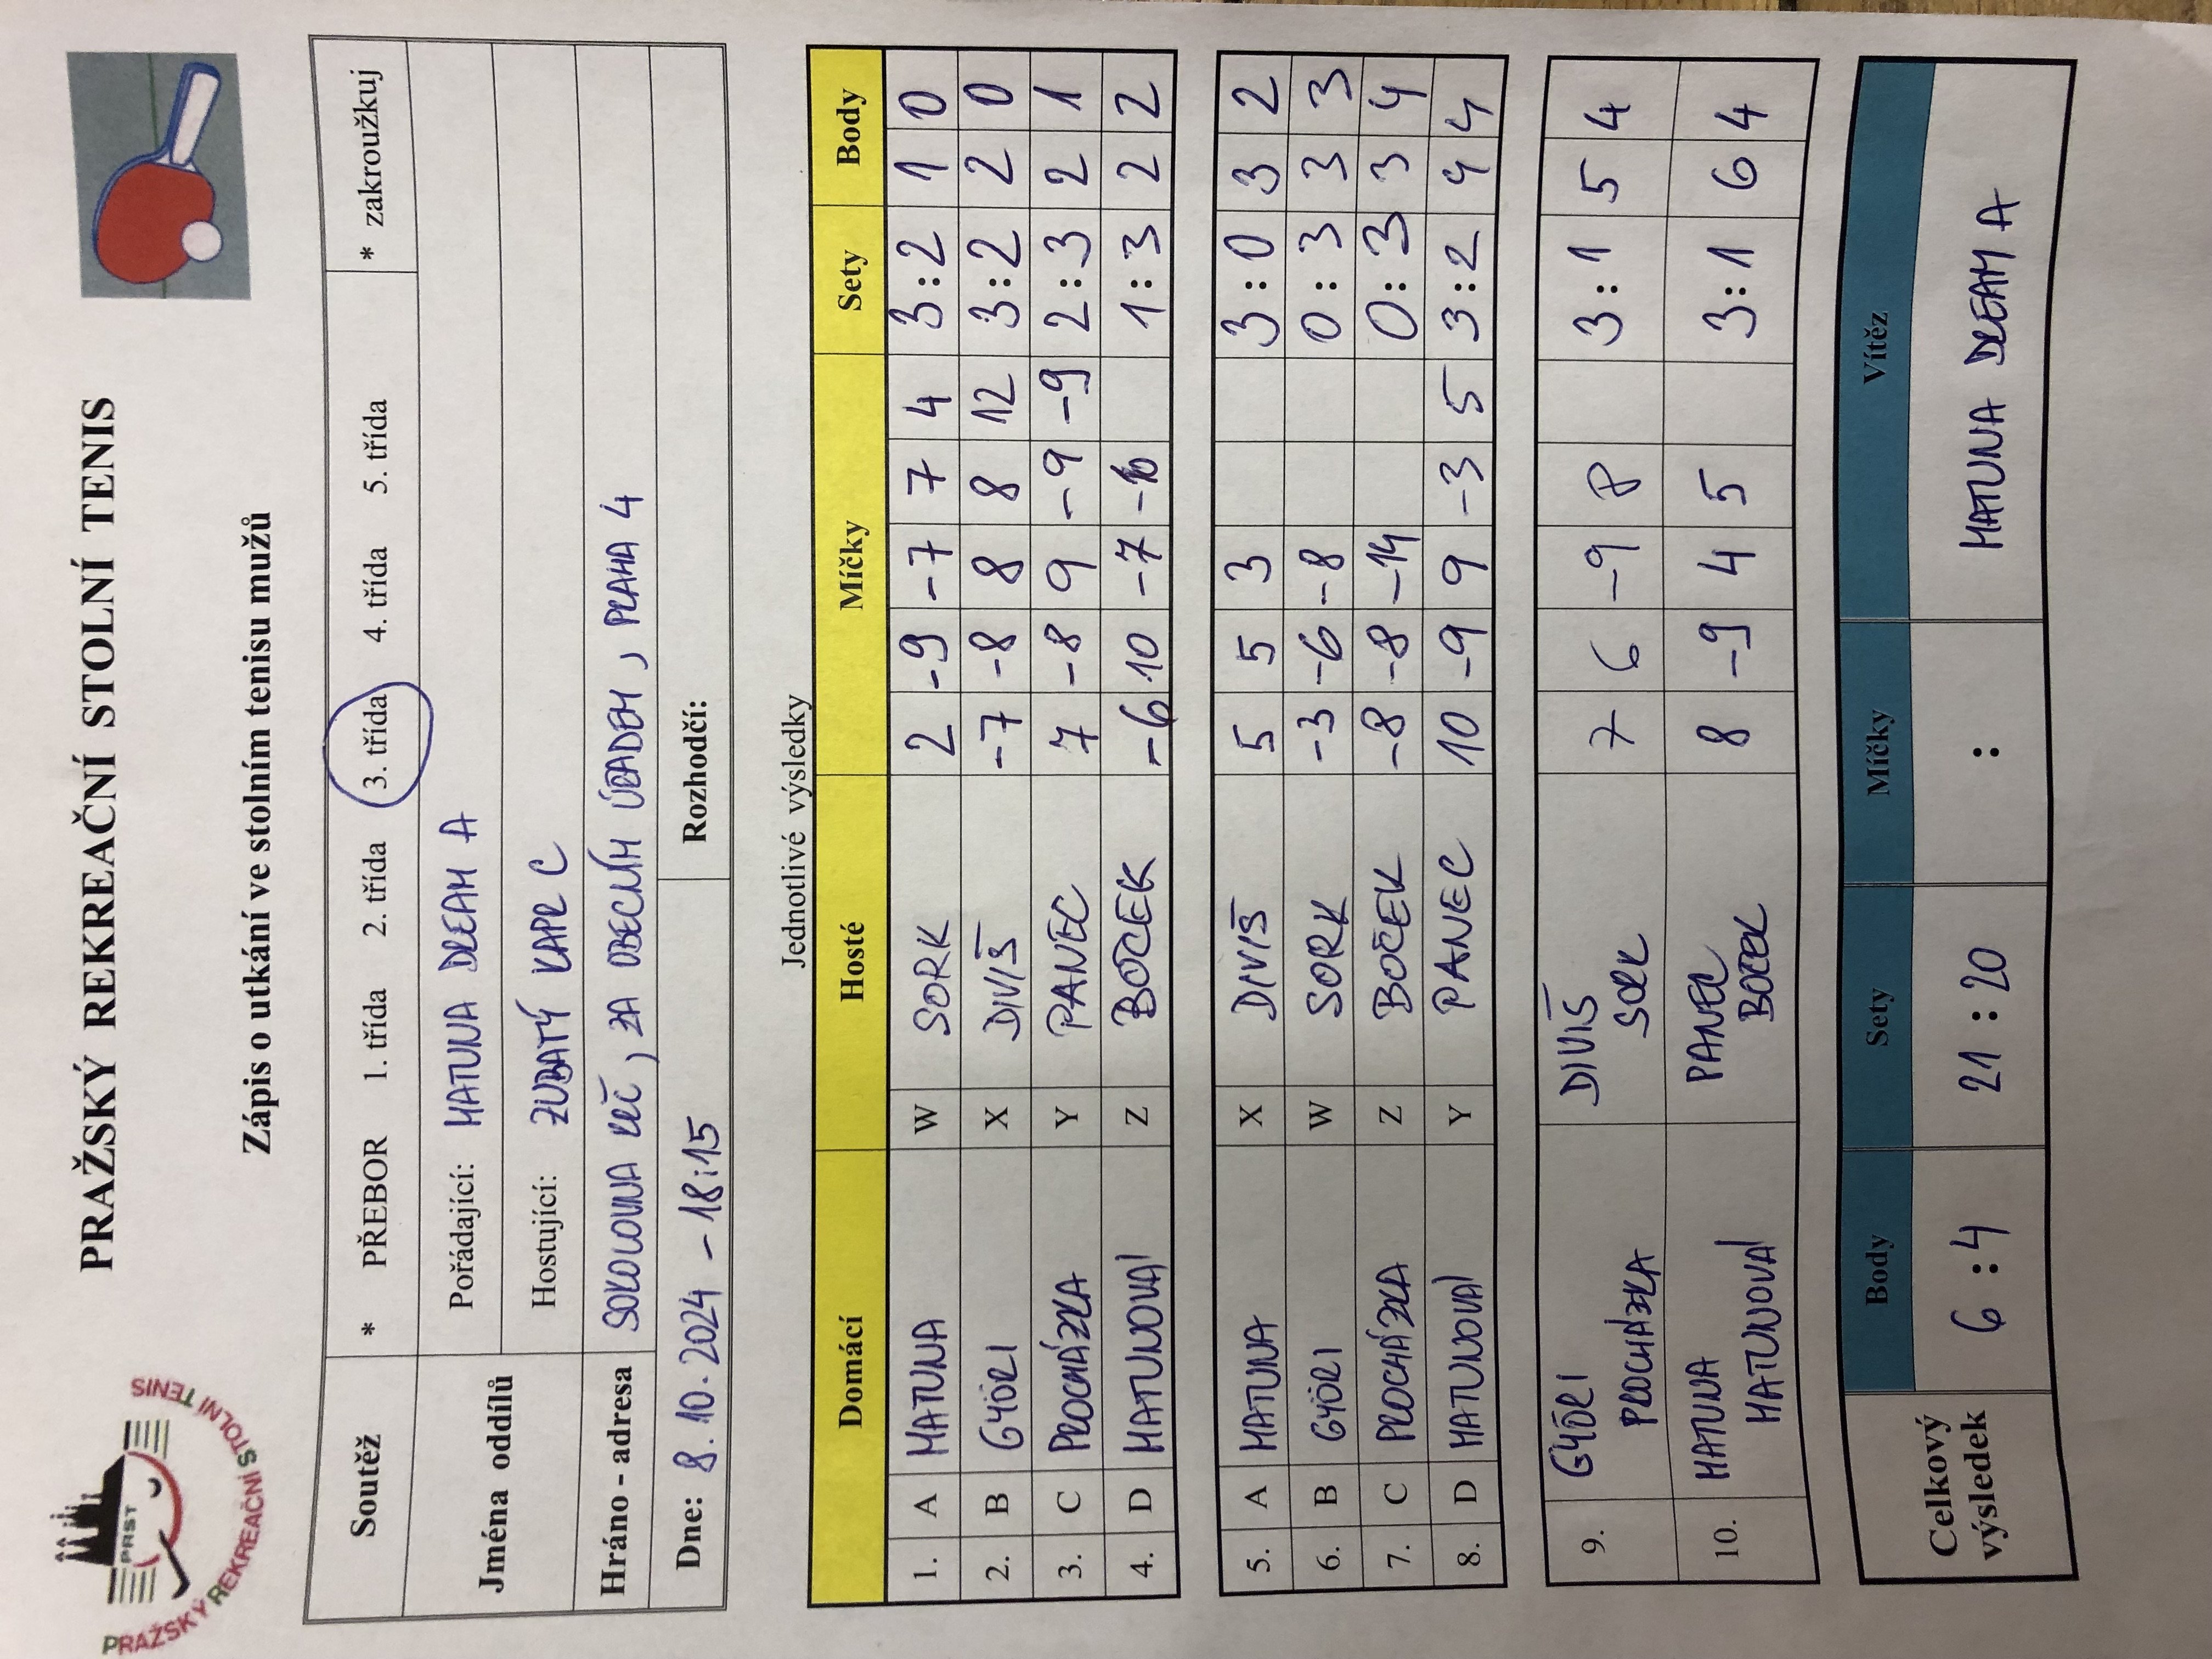 PRAŽSKÝ REKREAČNÍ STOLNÍ TENIS
PRST
PRAŽSKÝ REKREAČNÍ STOLNÍ TENIS
Zápis o utkání ve stolním tenisu mužů
Soutěž * PŘEBOR 1. třída 2. třída 3. třída 4. třída 5. třída * zakroužkuj
Jména oddílů Pořádající: MATUNA DREAM A
Hostující: ZUBATÝ KAPR C
Hráno - adresa SOKOLOVNA KRČ, ZA OBECNÍM ÚŘADEM, PRAHA 4
Dne: 8.10.2024 - 18:15 Rozhodčí:
Jednotlivé výsledky
Domácí Hosté Míčky Sety Body
1. A MATUNA W SORK 2 -9 -7 7 4 3:2 1 0
2. B GYÖRI X DIVIŠ -7 -8 8 8 12 3:2 2 0
3. C PROCHÁZKA Y PANEC 7 -8 9 -9 -9 2:3 2 1
4. D MATUNOVÁ Z BOČEK -6 10 -7 -10 1:3 2 2
5. A MATUNA X DIVIŠ 5 5 3 3:0 3 2
6. B GYÖRI W SORK -3 -6 -8 0:3 3 3
7. C PROCHÁZKA Z BOČEK -8 -8 -14 0:3 3 4
8. D MATUNOVÁ Y PANEC 10 -9 9 -3 5 3:2 4 4
9. GYÖRI PROCHÁZKA DIVIŠ SORK 7 6 -9 8 3:1 5 4
10. MATUNA MATUNOVÁ PANEC BOČEK 8 -9 4 5 3:1 6 4
Celkový výsledek Body Sety Míčky Vítěz
6:4 21:20 : MATUNA DREAM A